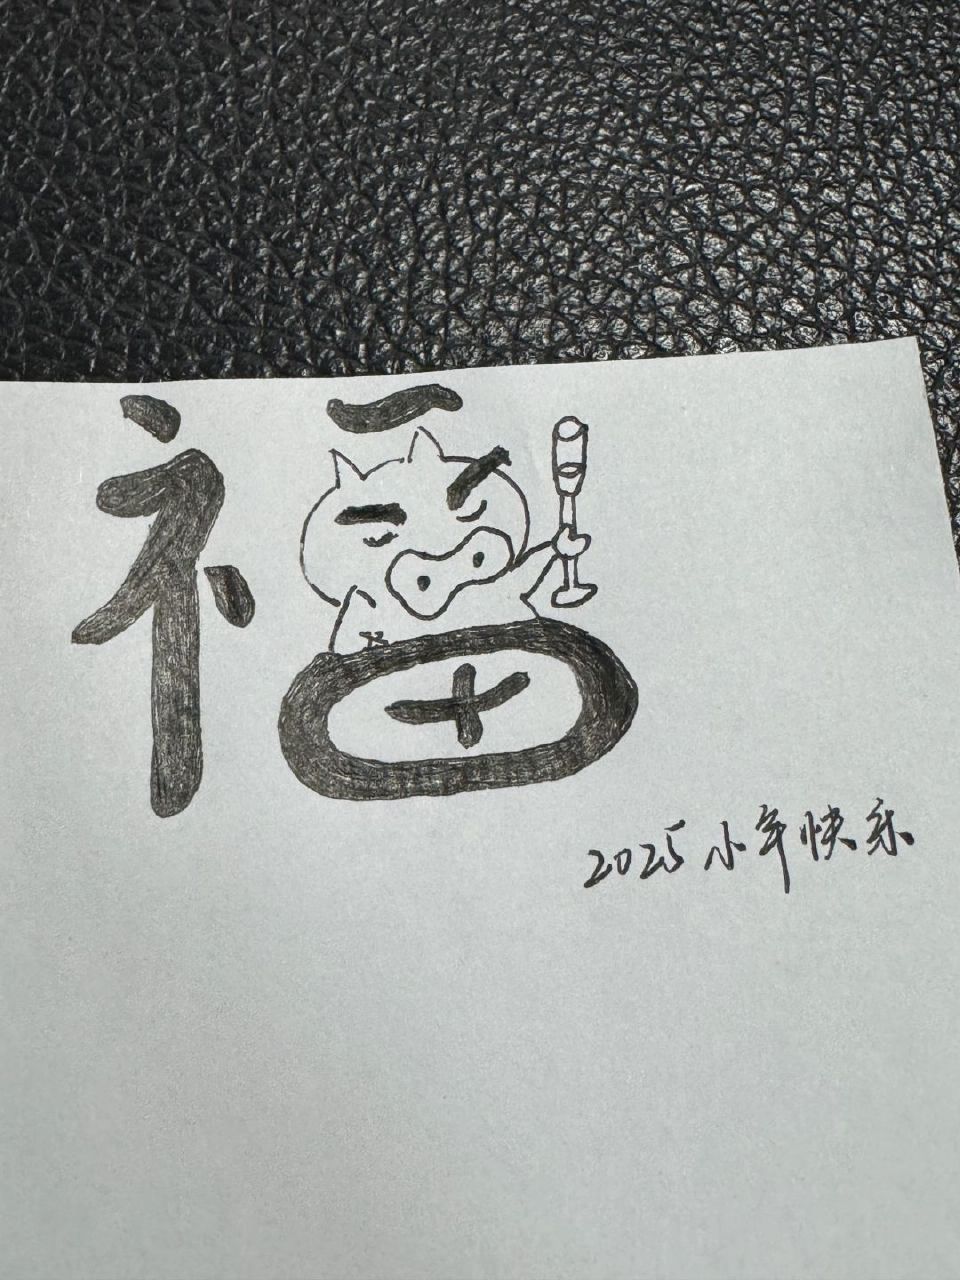 福
2025小年快乐